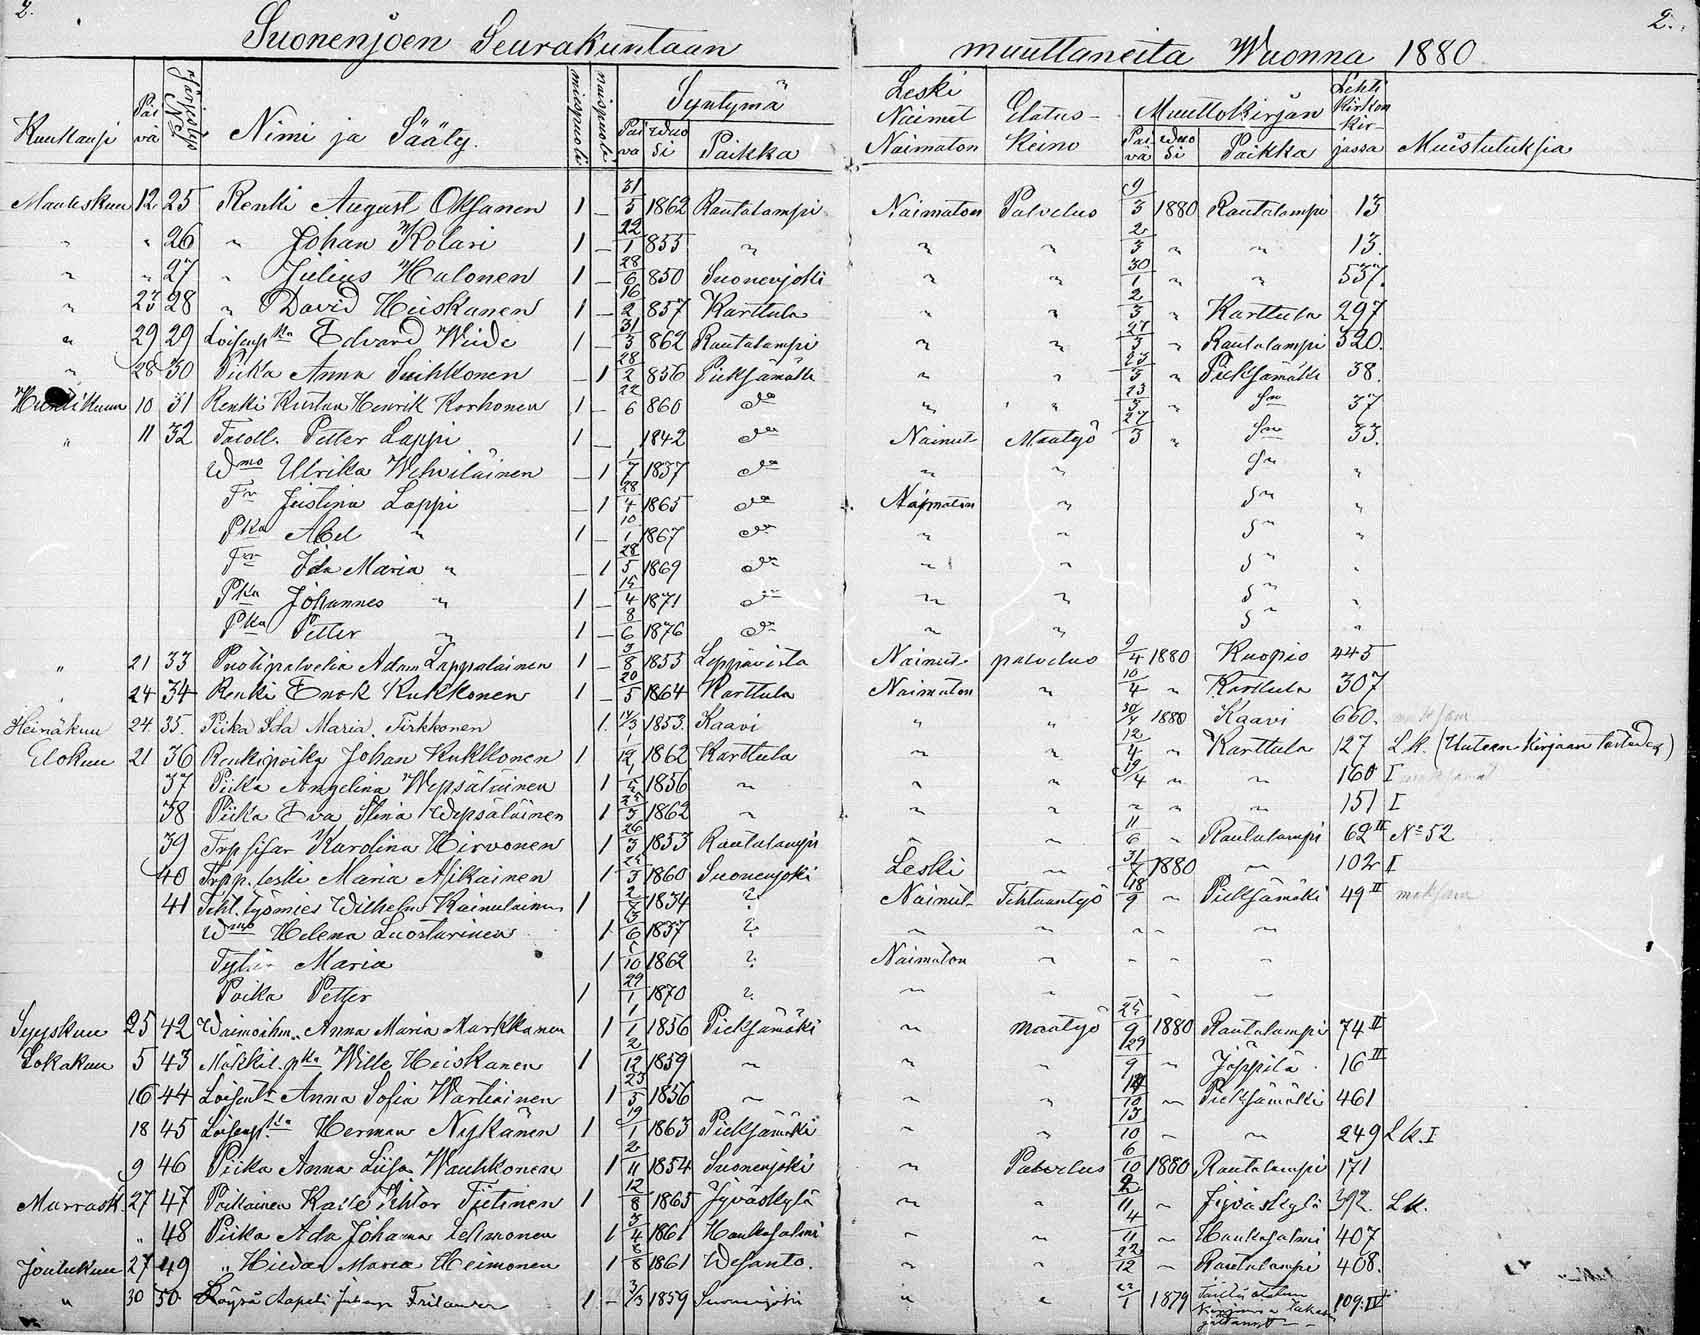 2. 2.
Suonenjoen Seurakuntaan muuttaneita Wuonna 1880
Kuukausi Päivä Järjestys No Nimi ja Sääty. miespuoli naispuoli Syntymä Päivä Wuosi Paikka Leski Naimet Naimaton Elatus-Keino Muuttokirjan Päivä Wuosi Paikka Lehti Kirkonkirjassa Muistutuksia
Maaliskuu 12 25 Renki August Oksanen 1 – 31/5 1862 Rautalampi Naimaton Palvelus 9/3 1880 Rautalampi 13
" " 26 " Johan Kolari 1 – 22/1 855 " " " 2/3 " " 13.
" " 27 " Julius Halonen 1 – 28/6 850 Suonenjoki " " 30/1 " " 537.
" 23 28 " David Hiiskanen 1 – 16/2 857 Karttula " " 2/3 " Karttula 297
" 29 29 Loisenp:ka Edvard Wiide 1 – 31/3 862 Rautalampi " " 27/3 " Rautalampi 320.
" 28 30 Piika Anna Suihkonen – 1 28/2 836 Pieksämäki " " 23/3 " Pieksämäki 38.
Huhtikuun 10 31 Renki Kustaa Henrik Korhonen 1 – 22/6 860 do " " 23/3 " Sn 37
" 11 32 Taloll. Petter Lappi 1 – 1842 do Nainut Maatyö 27/3 " Sn 33.
Wmo Ulrika Wehviläinen – 1 1/7 1837 do " " Sn "
Tr Justina Lappi – 1 28/4 1865 do Naimaton " Sn "
Pka Abel " 1 – 10/1 1867 do " " Sn "
Tr Ida Maria " – 1 28/5 1869 do " " Sn "
Pka Johannes " 1 – 15/4 1871 do " " Sn "
Pka Petter " 1 – 8/6 1876 do " " Sn "
" 21 33 Puotipalvelia Adam Lappalainen 1 – 5/8 1853 Leppävirta Nainut palvelus 9/4 1880 Kuopio 445
24 34 Renki Enok Kukkonen 1 – 20/5 1864 Karttula Naimaton " 10/4 " Karttula 307
Heinäkuu 24 35. Piika Ida Maria Tirkkonen 1. 14/3 1853. Kaavi " " 30/4 1880 Kaavi 660.
Elokuu 21 36 Renkipoika Johan Kukkonen 1 1/12 1862 Karttula " " 12/4 " Karttula 127 L.k. (Uuteen Kirjaan
37 Piika Angelina Wepsäläinen 1 1856 " " " 19/4 " " 160 I
38 Piika Eva Stina Wepsäläinen 1 25/3 1862 " " " " " " 151 I
39 Trp sisar Karolina Hirvonen 1 26/3 1853 Rautalampi " " 11/6 " Rautalampi 62 II No 52
40 Trpp. leski Maria Asikainen 1 1860 Suonenjoki Leski " 31/7 1880 " 102 I
41 Teht. työmies Wilhelm Kainulainen 1 1834 ? Nainut Tehtaantyö 18/9 " Pieksämäki 49 II
Wmo Helena Luostarinen 1 13/6 1837 ? " " " " "
Tytär Maria 1 1862 ? Naimaton " " " "
Poika Petter 1 29/1 1870 ? " " " "
Syyskuu 25 42 Waimoihm. Anna Maria Markkanen 1 1/1 1856 Pieksämäki " maatyö 25/9 1880 Rautalampi 74 II
Lokakuu 5 43 Mökkil. pka Wille Heiskanen 1 2/12 1859 " " " 29/9 " Jäppilä 16 II
16 44 Loisentr Anna Sofia Wartiainen 1 23/5 1856 " " " " Pieksämäki 461
18 45 Loisenp:ka Herman Nykänen 1 19/1 1863 Pieksämäki " " 13/10 " " 249 L.k. I
9 46 Piika Anna Liisa Wauhkonen 1 2/11 1854 Suonenjoki " Palvelus 6/10 1880 Rautalampi 171
Marrask. 27 47 Poikainen Kalle Viktor Tietinen 1 12/8 1865 Jyväskylä " " 2/11 " Jyväskylä 392. L.k.
" 48 Piika Ada Johanna Lehmonen 1 3/4 1861 Hankasalmi " " 4/11 " Hankasalmi 407
Joulukuu 27 49 " Hilda Maria Heimonen 1 8/8 1861 Wesanto. " " 22/12 " Rautalampi 408.
" 30 50. Köyrä Aapeli 1 – 3/3 1859 Suonenjoki " " 22/1 1879 109. IV